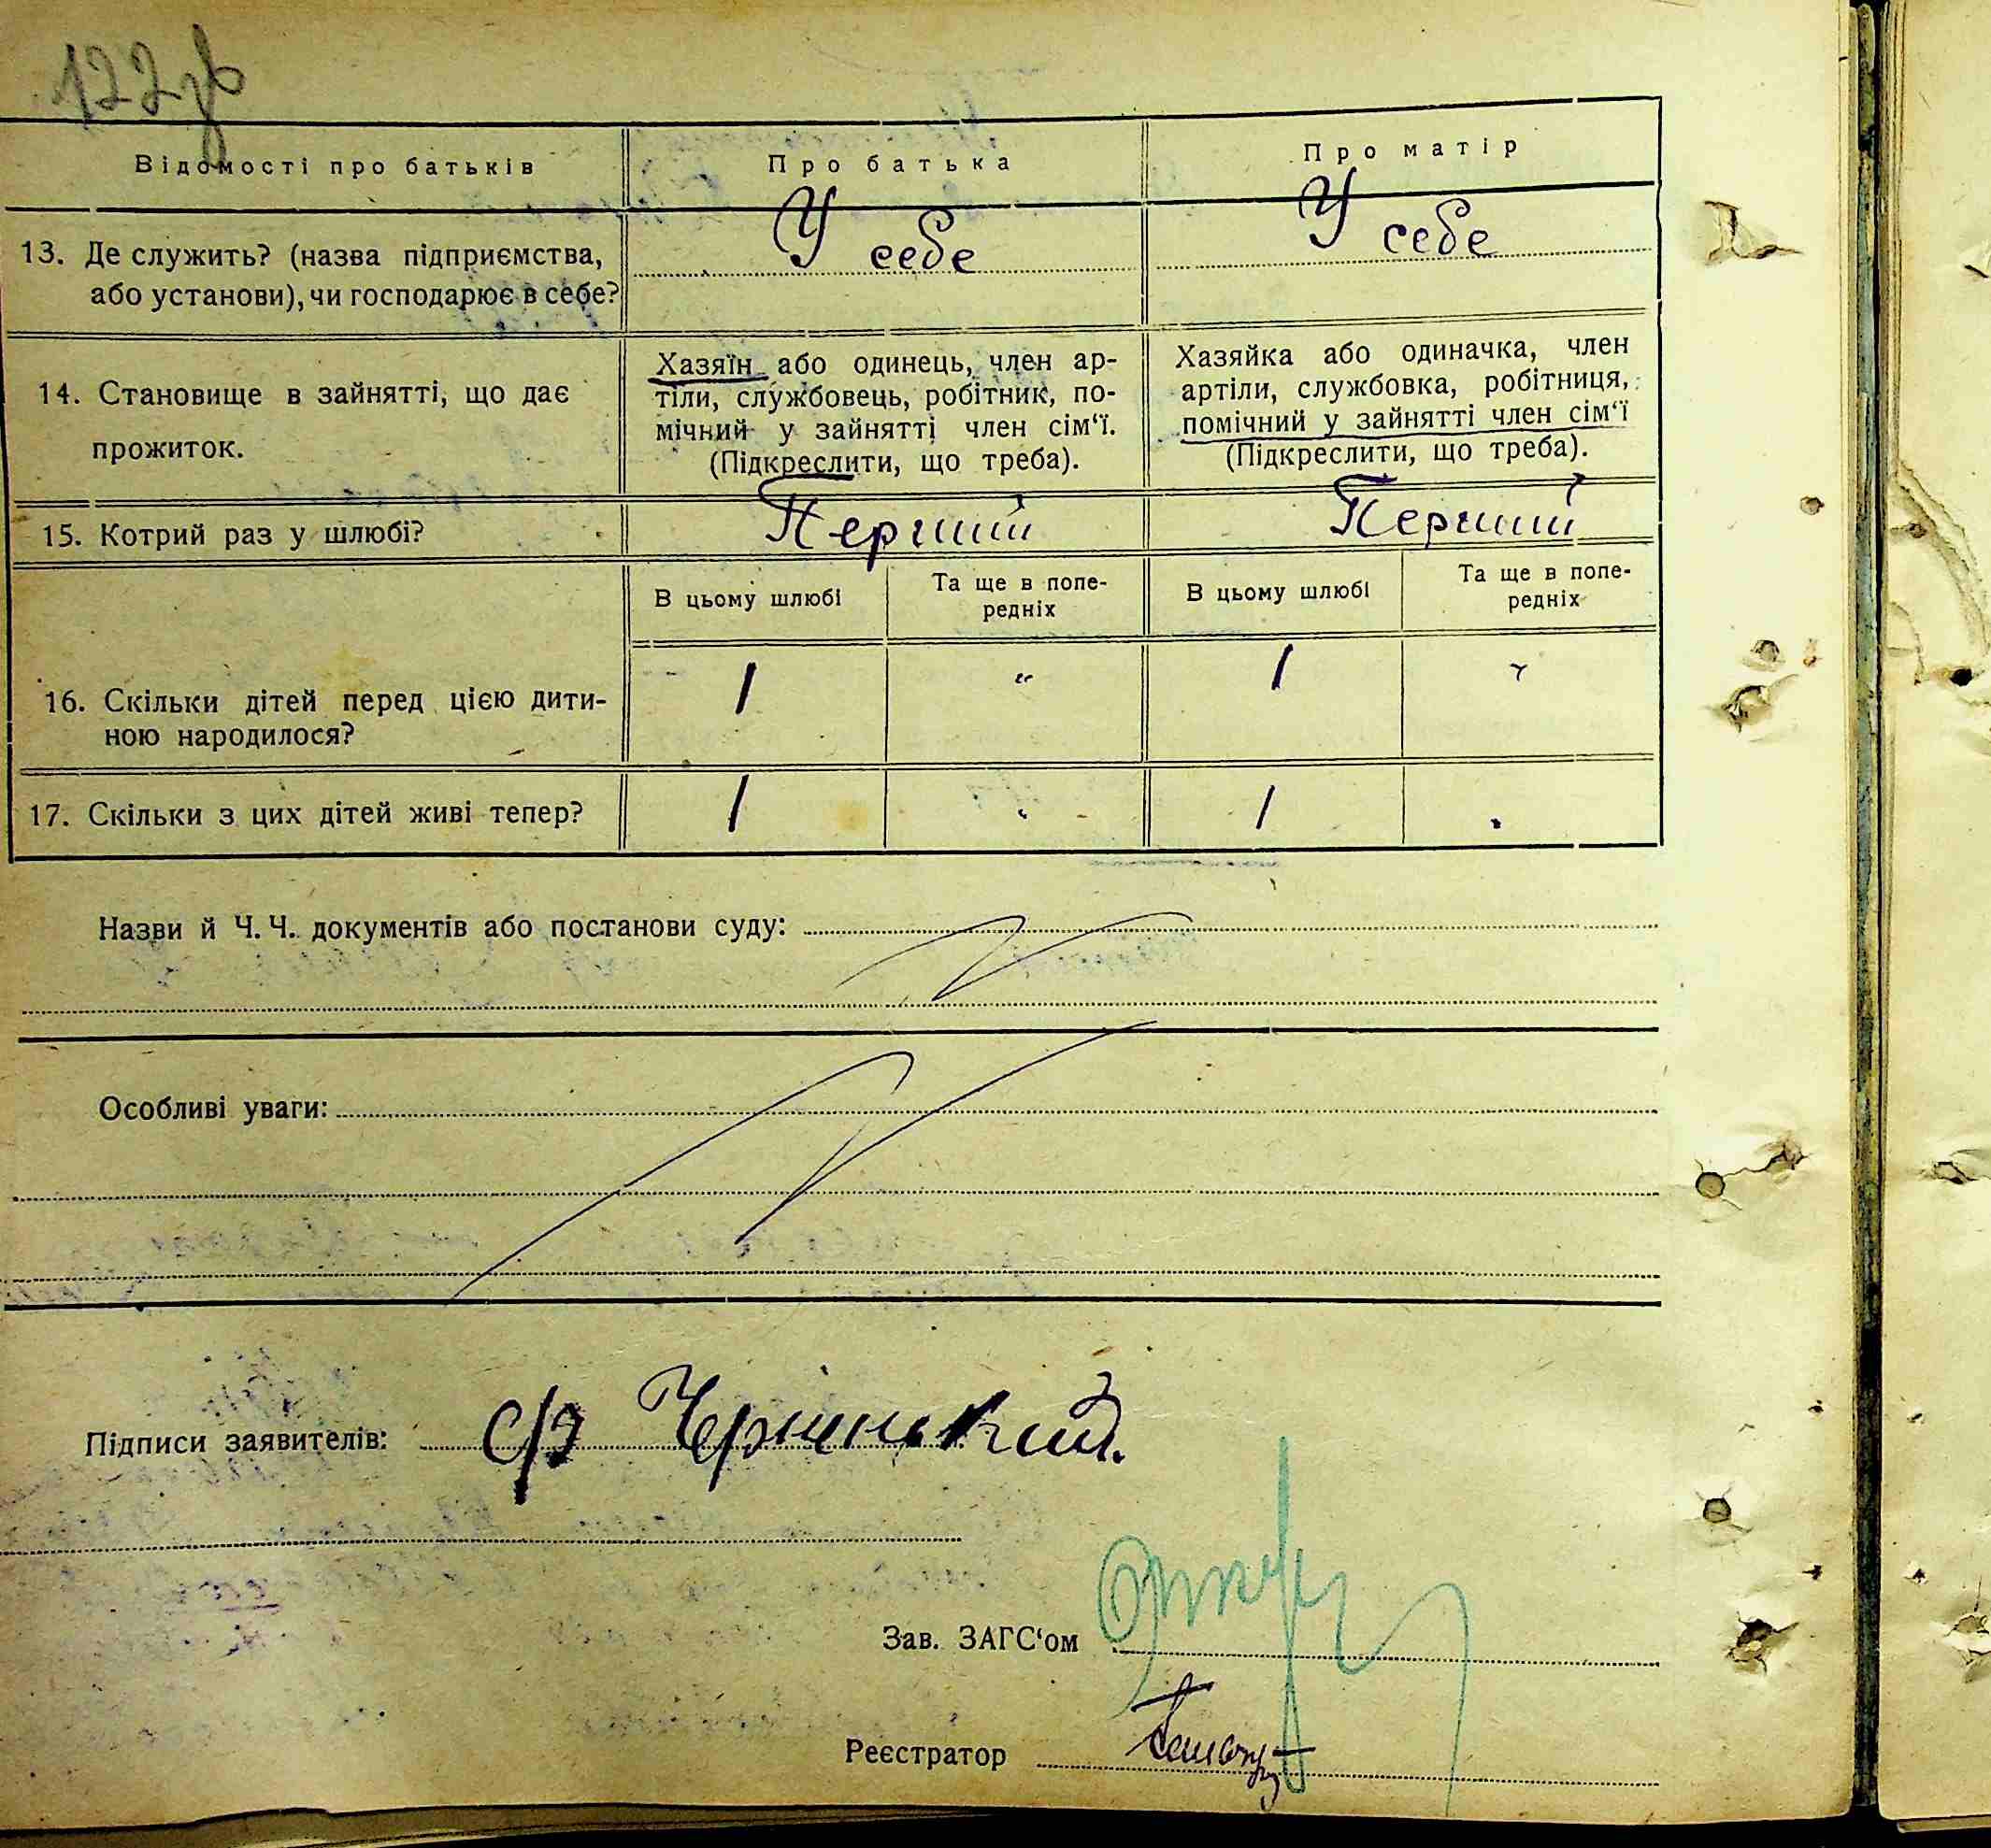 122зв
Відомості про батьків
Про батька
Про матір
13. Де служить? (назва підприємства,
або установи), чи господарює в себе?
У себе
У себе
14. Становище в зайнятті, що дає
прожиток.
Хазяїн або одинець, член ар-
тіли, службовець, робітник, по-
мічний у зайнятті член сім‘ї.
(Підкреслити, що треба).
Хазяйка або одиначка, член
артіли, службовка, робітниця,
помічний у зайнятті член сім‘ї
(Підкреслити, що треба).
15. Котрий раз у шлюбі?
Перший
Перший
В цьому шлюбі
Та ще в попе-
редніх
В цьому шлюбі
Та ще в попе-
редніх
16. Скільки дітей перед цією дити-
ною народилося?
1
"
1
17. Скільки з цих дітей живі тепер?
1
1
Назви й Ч. Ч. документів або постанови суду:
Особливі уваги:
Підписи заявителів:
Зав. ЗАГС‘ом
Реєстратор